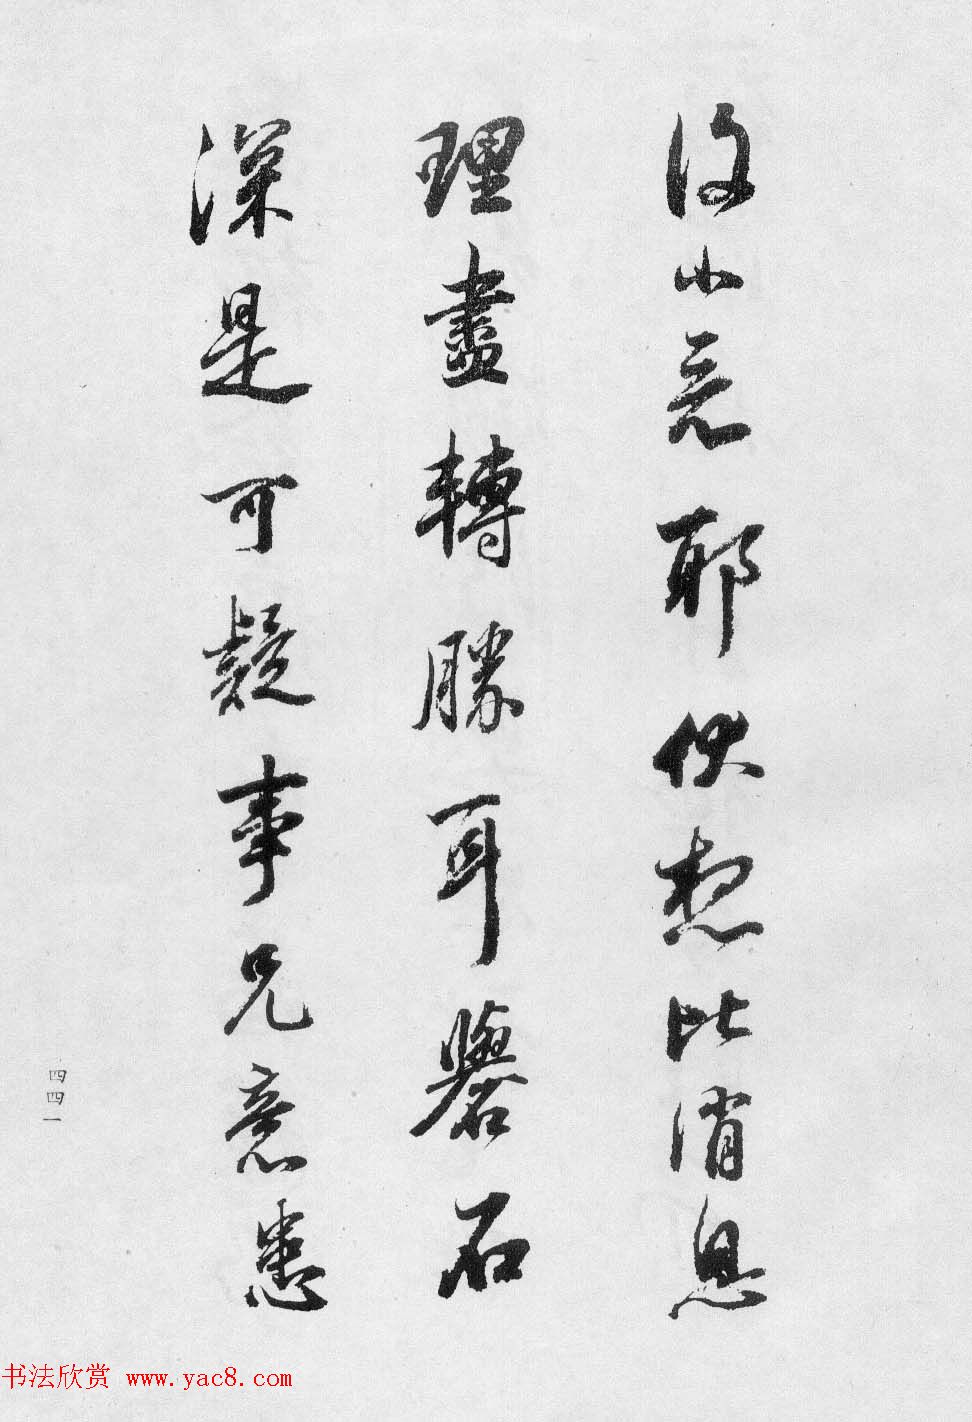 復小竟耶伏想比消息
理盡轉勝耳礜石
深是可疑事兄意患
四四一
书法欣赏 www.yac8.com